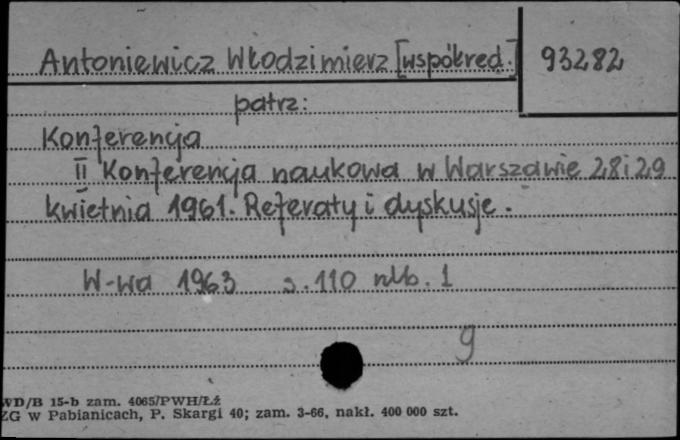 Antoniewicz Włodzimierz [współred.] 93282
patrz:
Konferencja
II Konferencja naukowa w Warszawie 28 i 29
kwietnia 1961. Referaty i dyskusje.
W-wa 1963 s. 110 nlb. 1
g
WD/B 15-b zam. 4065/PWH/Łź
ZG w Pabianicach, P. Skargi 40; zam. 3-66, nakł. 400 000 szt.